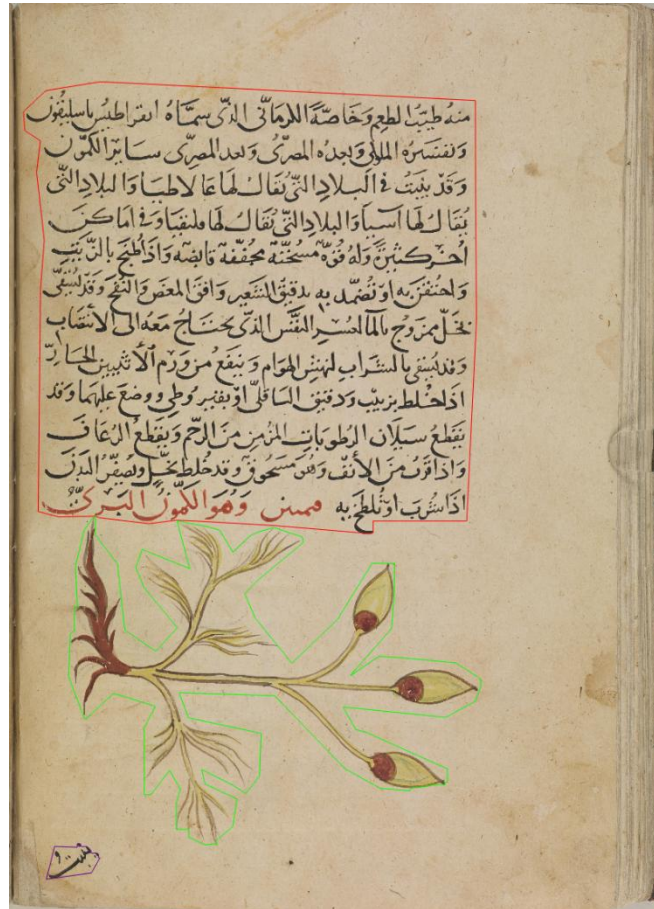 منه طيّب الطعم وخاصّة الكرماني الذي سمّاه ابقراطيس باسليقون
وتفسيره الملوكي وبعده المصري وبعد المصري ساير الكمّون
وقد ينبت في البلاد التي يقال لها غالاطيا والبلاد التي
يقال لها آسيا والبلاد التي يقال لها قليقيا وفي اماكن
اخر كثيرة وله قوّة مسخّنة مجفّفة قابضة واذا طبخ بالزيت
واحتقن به او تضمّد به بدقيق الشعير وافق المغص والنفخ وقد يسقى
بخلّ ممزوج بالماء لعسر النفس الذي يحتاج معه الى الانتصاب
وقد يسقى بالشراب لنهش الهوام وينفع من ورم الأنثيين الحارّ
اذا خلط بزيت ودقيق الباقلّى او بقيروطي ووضع عليهما وقد
يقطع سيلان الرطوبات المزمن من الرحم ويقطع الرعاف
واذا قرّب من الأنف وهو مسحوق وقد خلط بخلّ ويصفّر البدن
اذا شرب او تلطّخ به وهو الكمّون البرّي
ينبت